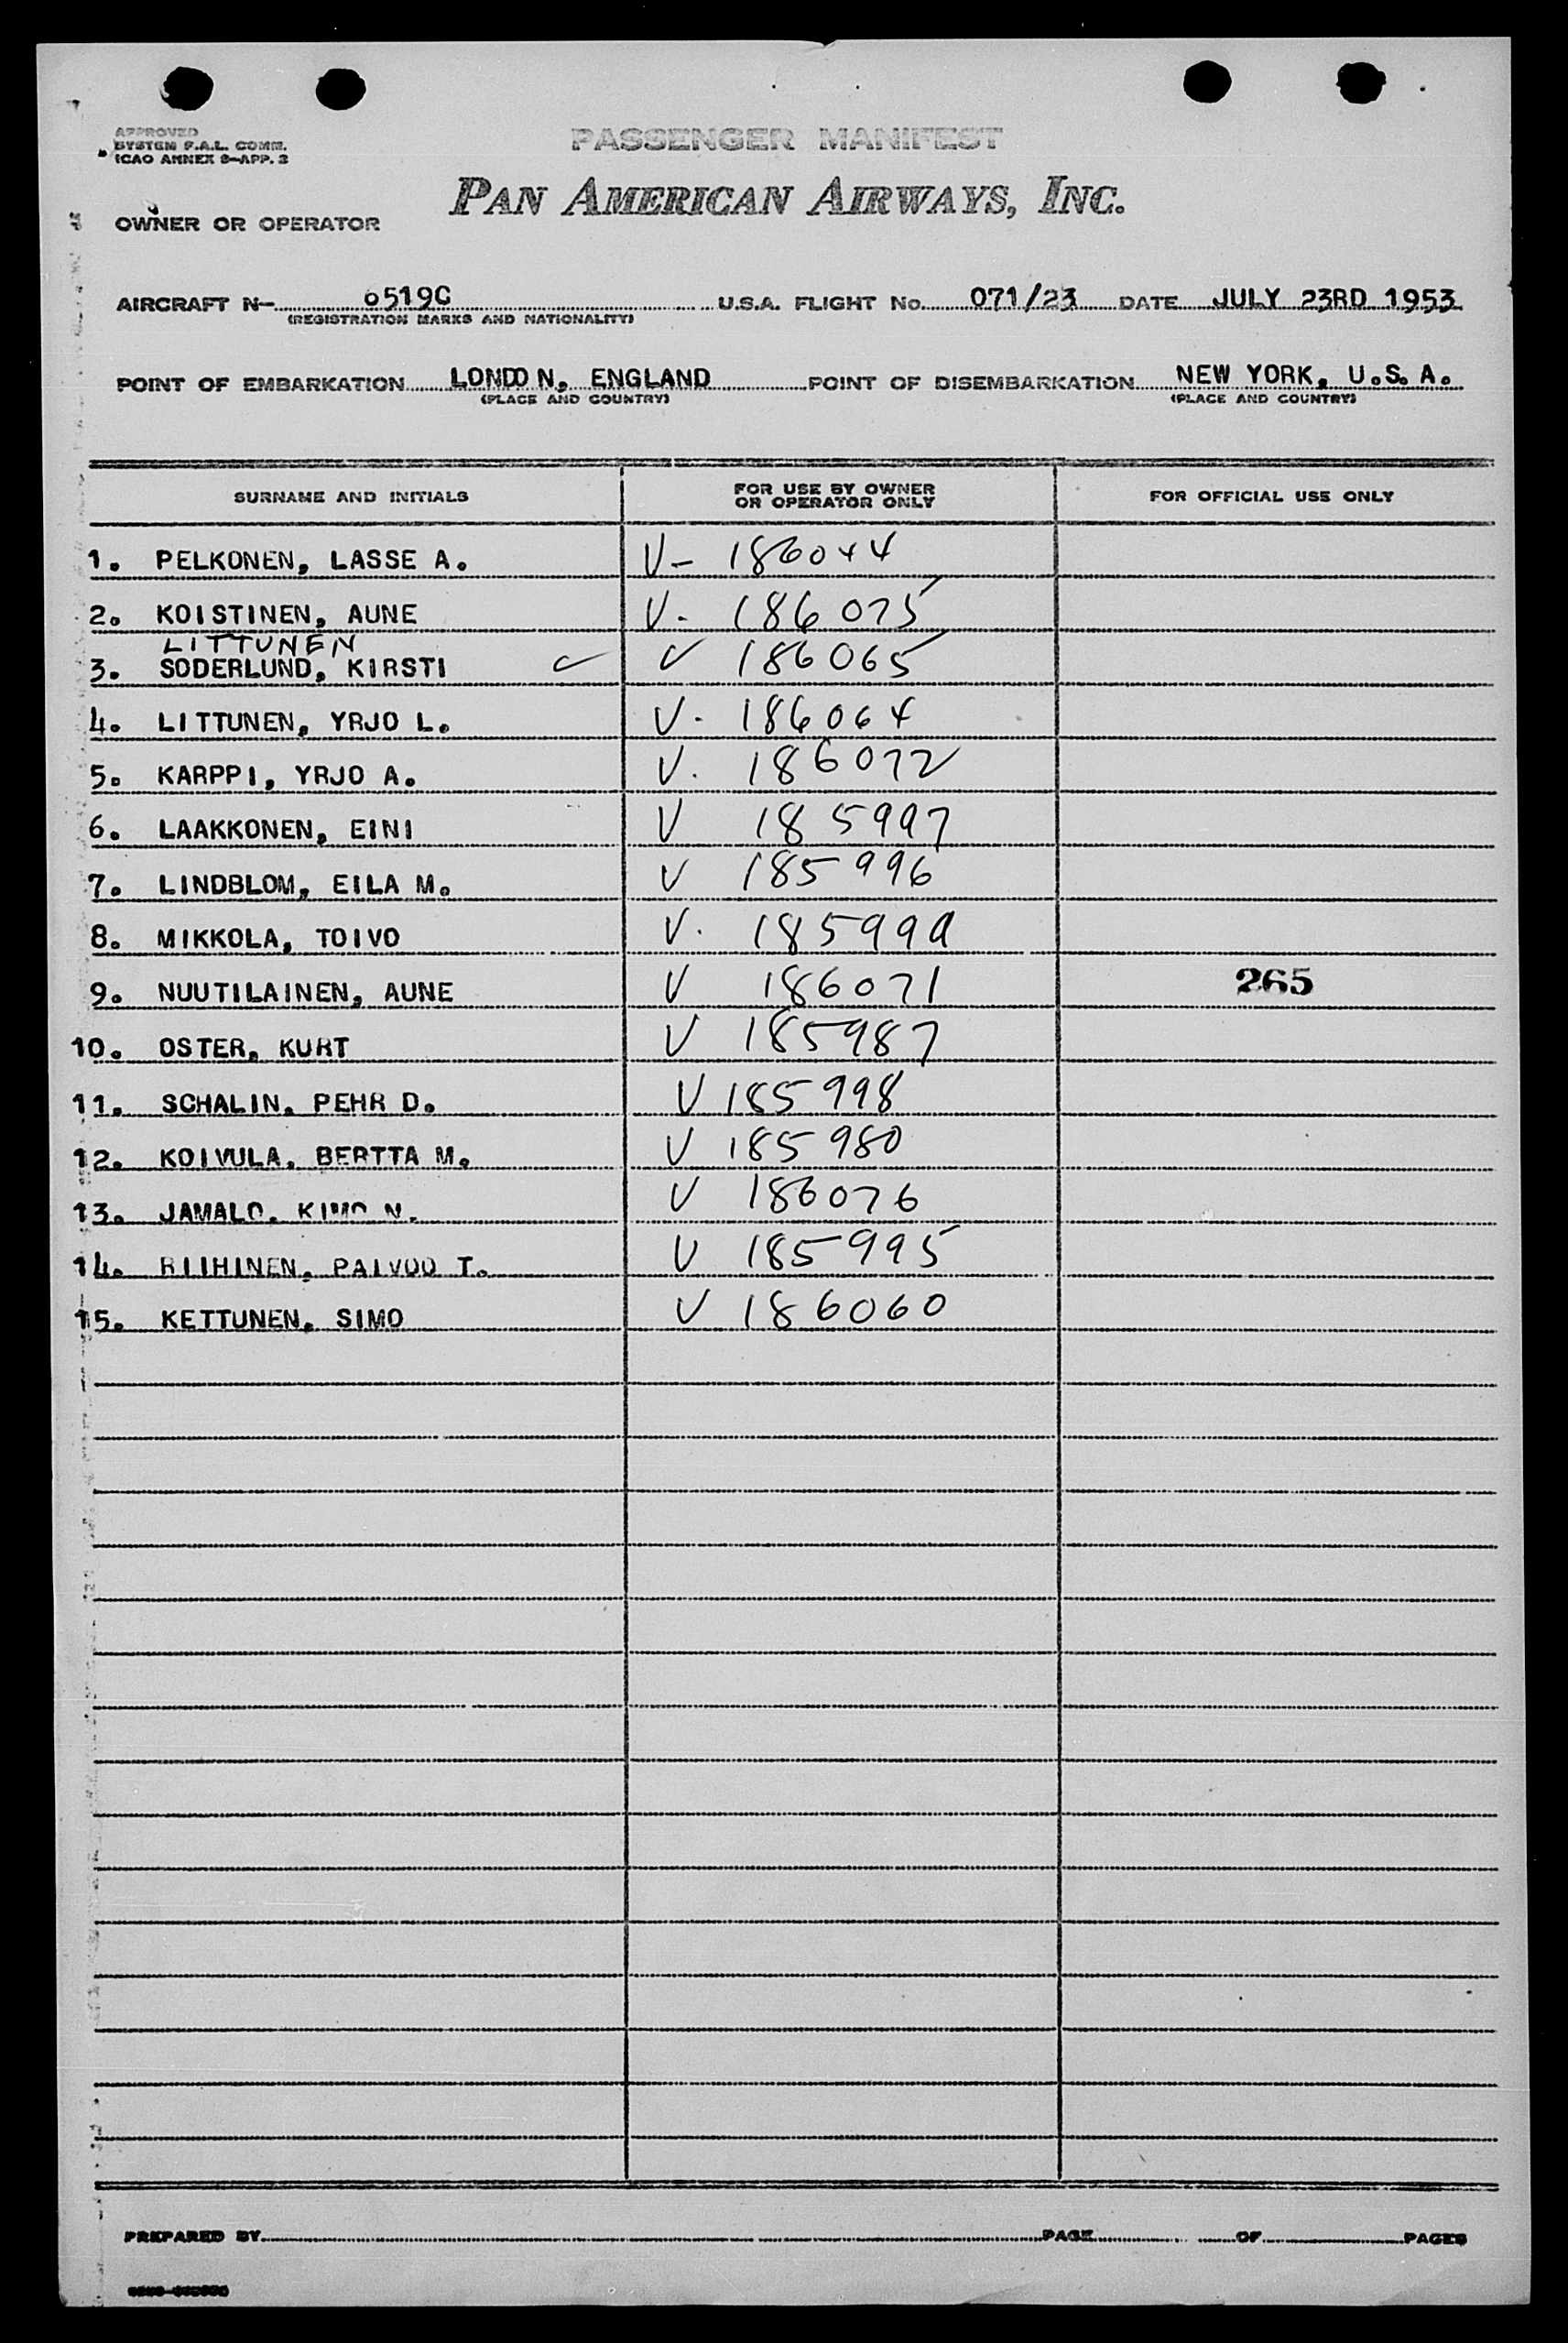 APPROVED
SYSTEM F.A.L. COMM.
ICAO ANNEX 9-APP. 3
PASSENGER MANIFEST
PAN AMERICAN AIRWAYS, INC.
OWNER OR OPERATOR
AIRCRAFT N- 6519C U.S.A. FLIGHT No. 071/23 DATE JULY 23RD 1953
(REGISTRATION MARKS AND NATIONALITY)
POINT OF EMBARKATION LONDON, ENGLAND POINT OF DISEMBARKATION NEW YORK, U.S.A.
(PLACE AND COUNTRY) (PLACE AND COUNTRY)
SURNAME AND INITIALS FOR USE BY OWNER OR OPERATOR ONLY FOR OFFICIAL USE ONLY
1. PELKONEN, LASSE A. V- 186044
2. KOISTINEN, AUNE V. 186075
LITTUNEN
3. SODERLUND, KIRSTI ✓ V 186065
4. LITTUNEN, YRJO L. V. 186064
5. KARPPI, YRJO A. V. 186072
6. LAAKKONEN, EINI V 185997
7. LINDBLOM, EILA M. V 185996
8. MIKKOLA, TOIVO V. 185999
9. NUUTILAINEN, AUNE V 186071 265
10. OSTER, KURT V 185987
11. SCHALIN, PEHR D. V 185998
12. KOIVULA, BERTTA M. V 185980
13. JAMALO, KIMO N. V 186076
14. RIIHINEN, PAIVOO T. V 185995
15. KETTUNEN, SIMO V 186060
PREPARED BY PAGE OF PAGES